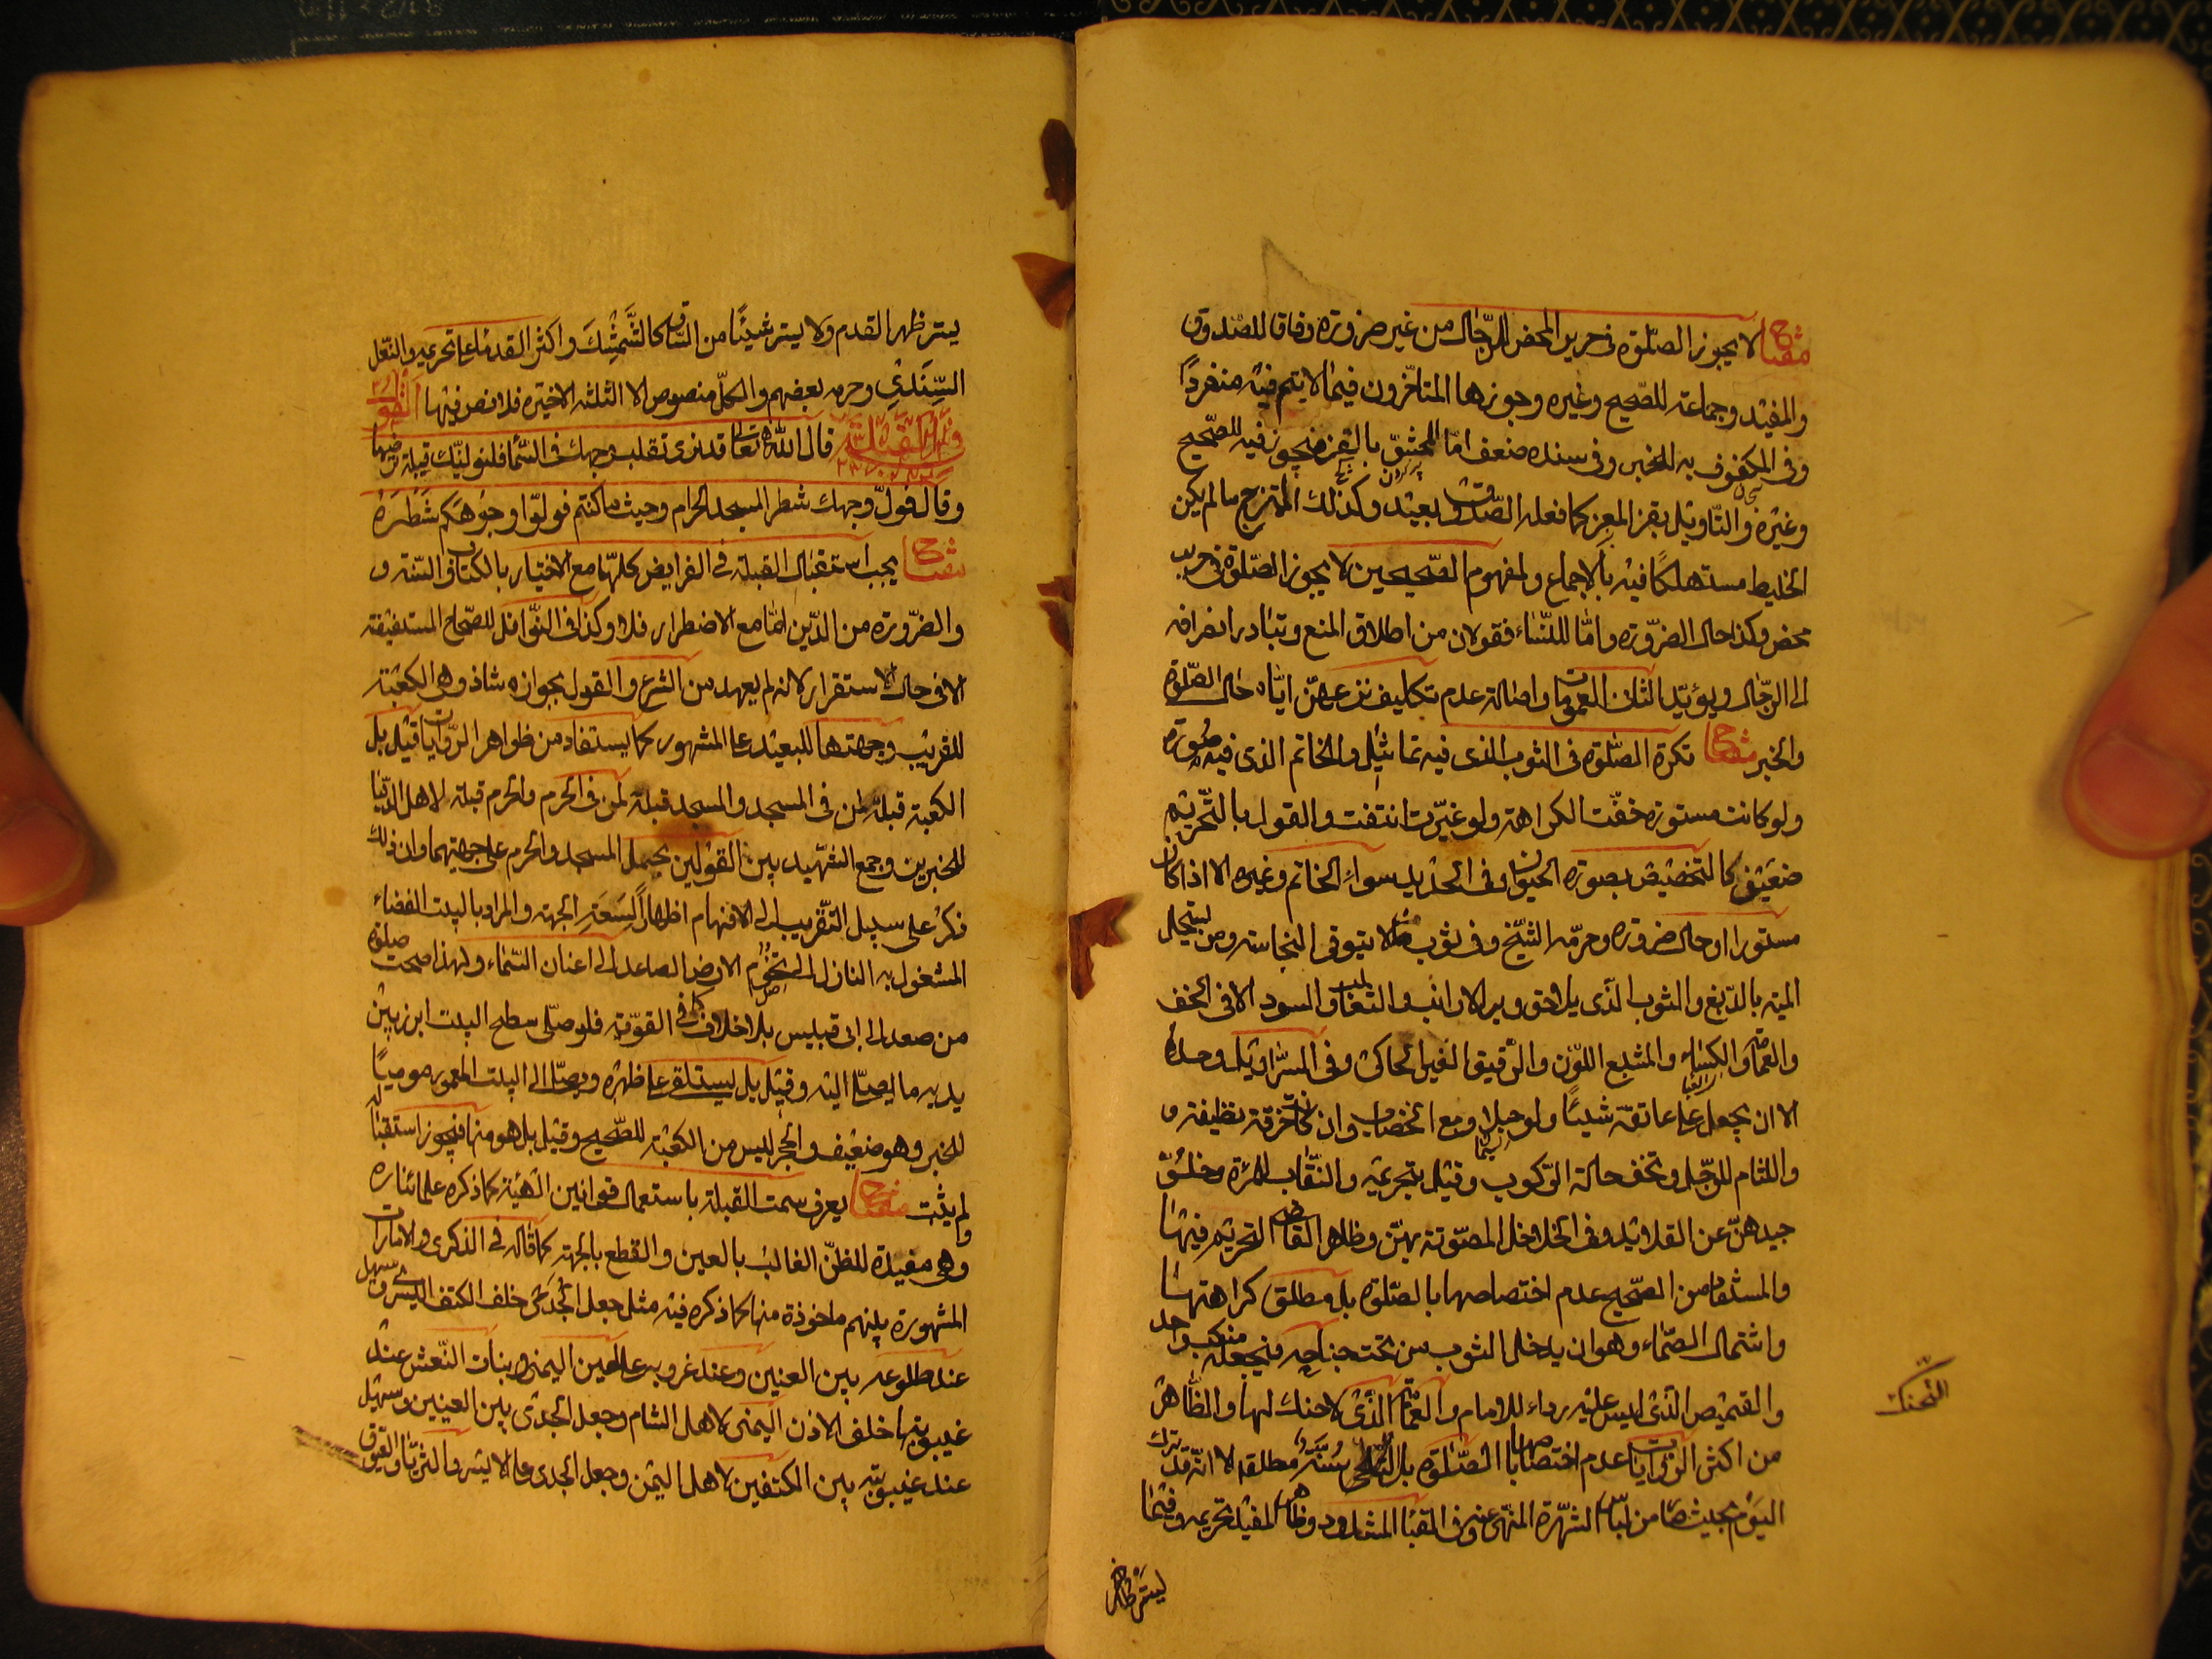 مفتاح لا يجوز الصّلوة فى حرير المحض للرّجال من غير ضرورة وفاقا للصّدوق
والمفيد وجماعة للصّحيح وغيره وجوزها المتأخّرون فيما لا يتم فيه منفردًا
وفى المكفوف به للخبر وفى سنده ضعف امّا المحشوّ بالقز فيجوز فيه للصّحيح
وغيره والتّاويل بقز المعز كما فعله الصّدوق بعيد وكذلك الممتزج ما لم يكن
الخليط مستهلكًا فيه بالاجماع ولمفهوم الصّحيحين لا يجوز الصّلوة فى حرير
محض وكذا حال الضّرورة وامّا للنّساء فقولان من اطلاق المنع وتبادر انصرافه
الى الرّجال ويؤيّد الثانى العمومات واصالة عدم تكليف نزعهنّ ايّاه حال الصّلوة
والخبر مفتاح تكره الصّلوة فى الثوب الذى فيه تماثيل والخاتم الذى فيه صورة
ولو كانت مستورة خفّت الكراهة ولو غيّرت انتفت والقول بالتّحريم
ضعيف كالتخصيص بصورة الحيوان وفى الحديد سواء الخاتم وغيره الا اذا كان
مستورا او حال ضرورة وحرّمه الشّيخ وفى ثوب من لا يتوقى النجاسة ومن يستحلّ
الميتة بالدّبغ والثوب الّذى يلاصق وبر الارانب والثعالب والسود الا فى الخف
والعمامة والكساء والمشبع اللّون والرّقيق الغير الحاكى وفى السّراويل وحده
الا ان يجعل على عاتقه شيئًا ولو حبلا ومع الخضاب وان كان خرقة نظيفة و
واللثام للرّجل وتخف حالة الرّكوب وقيل بتحريمه والنّقاب للمرءة وخلوّ
جيدهنّ عن القلائد وفى الخلاخل المصوّتة لهنّ وظاهر القاضى التحريم فيها
والمستفاد من الصّحيح عدم اختصاصها بالصّلوة بل مطلق كراهتها
واشتمال الصّماء وهو ان يدخل الثوب من تحت جناحه فيجعله منكب واحد
والقميص الّذى ليس عليه رداء للامام والعمامة الّذى لا حنك لها والظّاهر
من اكثر الرّوايات عدم اختصاصها بالصّلوة بل التحنّك سُنّة مطلقة الا انّه قد ترك
اليوم بحيث صار من لباس الشّهرة المنهى عنه وفى القبا المشدود وظاهر المفيد تحريمه وفيما
التحنك
يستر ظهر
يستر ظهر القدم ولا يستر شيئًا من السّاق كالشَّمِشْكَ واكثر القدماء على تحريمه والنّعل
السِّنَدِي وحرمه بعضهم والكلّ منصوص الا الثلثة الاخيرة فلا نص فيها القول
فى القبلة قال الله تعا قد نرى تقلب وجهك فى السّماء فلنولينّك قبلة ترضيها
وقال فولّ وجهك شطر المسجد الحرام وحيث ما كنتم فولّوا وجوهكم شَطْرَهُ
مفتاح يجب استقبال القبلة فى الفرايض كلهّا مع الاختيار بالكتاب والسّنة و
والضّرورة من الدّين امّا مع الاضطرار فلا وكذا فى النّوافل للصّحاح المستفيضة
الا فى حال الاستقرار لانه لم يعهد من الشرع والقول بجوازه شاذ وهى الكعبة
للقريب وجهتها للبعيد على المشهور كما يستفاد من ظواهر الرّوايات وقيل بل
الكعبة قبلة لمن فى المسجد والمسجد قبلة لمن فى الحرم والحرم قبلة لاهل الدّنيا
للخبرين وجمع الشّهيد بين القولين بحمل المسجد والحرم على جهتهما وان ذلك
ذكر على سبيل التّقريب الى الافهام اظهارًا لِسَعَةِ الجهة والمراد بالبيت الفضاء
المشغول به النازل الى تخوم الارض الصاعد الى اعنان السّماء ولهذا صحت صلوة
من صعد الى ابى قبيس بلا خلاف كما فى القوّية فلو صلّى سطح البيت ابرز بين
يديه ما يصلّى اليه وقيل بل يستلقى على ظهره ويصلّى الى البيت المعمور موميًا
للخبر وهو ضعيف والحجر ليس من الكعبة للصّحيح وقيل بل هو منها فيجوز استقباله
ولم يثبت مفتاح يعرف سمت القبلة باستعمال قوانين الهيئة كما ذكره علمائنا ره
وهى مفيدة للظنّ الغالب بالعين والقطع بالجهة كما قاله فى الذكرى والامارات
المشهورة بينهم ماخوذة منها كما ذكره فيه مثل جعل الجَدَى خلف الكتف اليسرى وسهيل
عند طلوعه بين العينين وعند غروبه على العين اليمنى وبنات النّعش عند
غيبوبتها خلف الاذن اليمنى لاهل الشام وجعل الجدى بين العينين وسهيل
عند غيبوبته بين الكتفين لاهل اليمن وجعل الجدى على الايسر والثريّا والعيّوق